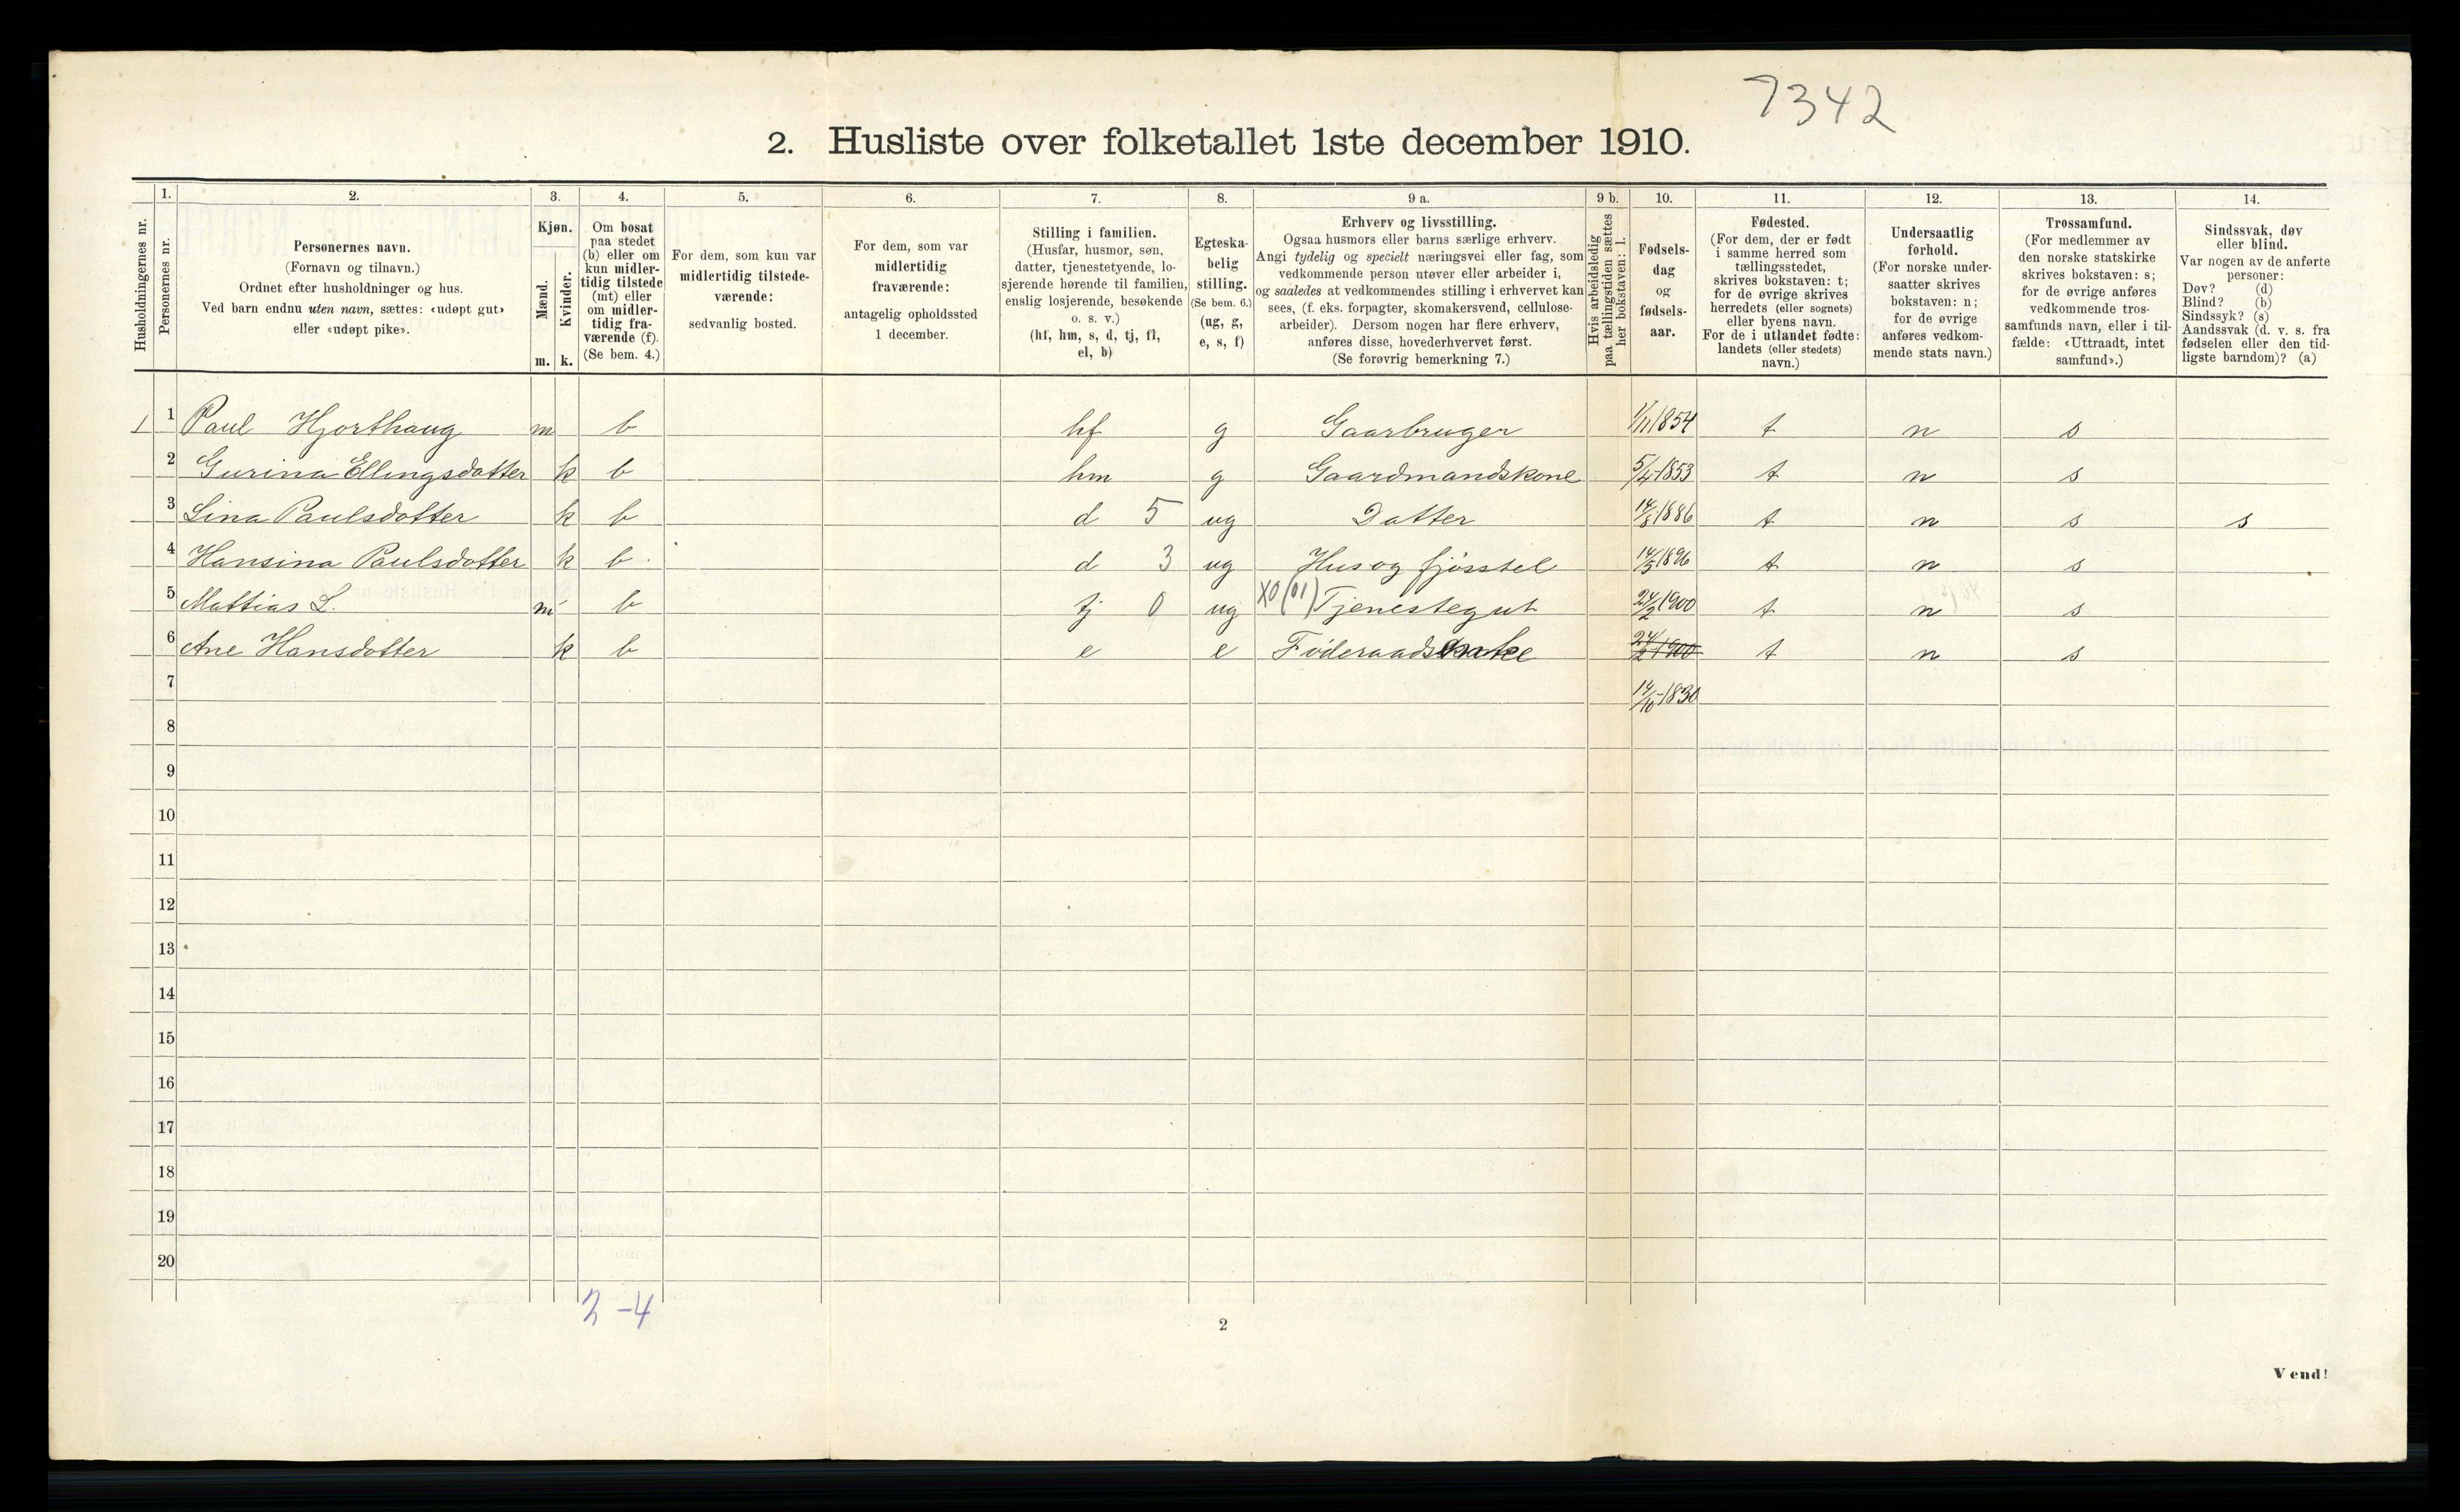 7342
2. Husliste over folketallet 1ste december 1910.
Husholdningernes nr.
1.
Personernes nr.
2.
Personernes navn.
(Fornavn og tilnavn.)
Ordnet efter husholdninger og hus.
Ved barn endnu uten navn, sættes: «udøpt gut»
eller «udøpt pike».
3.
Kjøn.
Mænd.
Kvinder.
m. k.
4.
Om bosat
paa stedet
(b) eller om
kun midler-
tidig tilstede
(mt) eller
om midler-
tidig fra-
værende (f).
(Se bem. 4.)
5.
For dem, som kun var
midlertidig tilstede-
værende:
sedvanlig bosted.
6.
For dem, som var
midlertidig
fraværende:
antagelig opholdssted
1 december.
7.
Stilling i familien.
(Husfar, husmor, søn,
datter, tjenestetyende, lo-
sjerende hørende til familien,
enslig losjerende, besøkende
o. s. v.)
(hf, hm, s, d, tj, fl,
el, b)
8.
Egteska-
belig
stilling.
(Se bem. 6.)
(ug, g,
e, s, f)
9 a.
Erhverv og livsstilling.
Ogsaa husmors eller barns særlige erhverv.
Angi tydelig og specielt næringsvei eller fag, som
vedkommende person utøver eller arbeider i,
og saaledes at vedkommendes stilling i erhvervet kan
sees, (f. eks. forpagter, skomakersvend, cellulose-
arbeider). Dersom nogen har flere erhverv,
anføres disse, hovederhvervet først.
(Se forøvrig bemerkning 7.)
9 b.
Hvis arbeidsledig
paa tællingstiden sættes
her bokstaven: l.
10.
Fødsels-
dag
og
fødsels-
aar.
11.
Fødested.
(For dem, der er født
i samme herred som
tællingsstedet,
skrives bokstaven: t;
for de øvrige skrives
herredets (eller sognets)
eller byens navn.
For de i utlandet fødte:
landets (eller stedets)
navn.)
12.
Undersaatlig
forhold.
(For norske under-
saatter skrives
bokstaven: n;
for de øvrige
anføres vedkom-
mende stats navn.)
13.
Trossamfund.
(For medlemmer av
den norske statskirke
skrives bokstaven: s;
for de øvrige anføres
vedkommende tros-
samfunds navn, eller i til-
fælde: «Uttraadt, intet
samfund».)
14.
Sindssvak, døv
eller blind.
Var nogen av de anførte
personer:
Døv? (d)
Blind? (b)
Sindssyk? (s)
Aandssvak (d. v. s. fra
fødselen eller den tid-
ligste barndom)? (a)
1 1 Paul Hjorthaug m b hf g Gaarbruger 1/11 1854 t n s
2 Gurina Ellingsdatter k b hm g Gaardmandskone 5/4-1853 t n s
3 Lina Paulsdotter k b d 5 ug Datter 14/8 1886 t n s s
4 Hansina Paulsdotter k b d 3 ug Hus og fjösstel 14/5 1896 t n s
5 Mattias L. m b tj 0 ug XO (01) Tjenestegut 24/2 1900 t n s
6 Ane Hansdotter k b e e Föderaadsenke 24/2 1900 t n s
7 14/10-1830
8
9
10
11
12
13
14
15
16
17
18
19
20
2 -4
2
Vend!